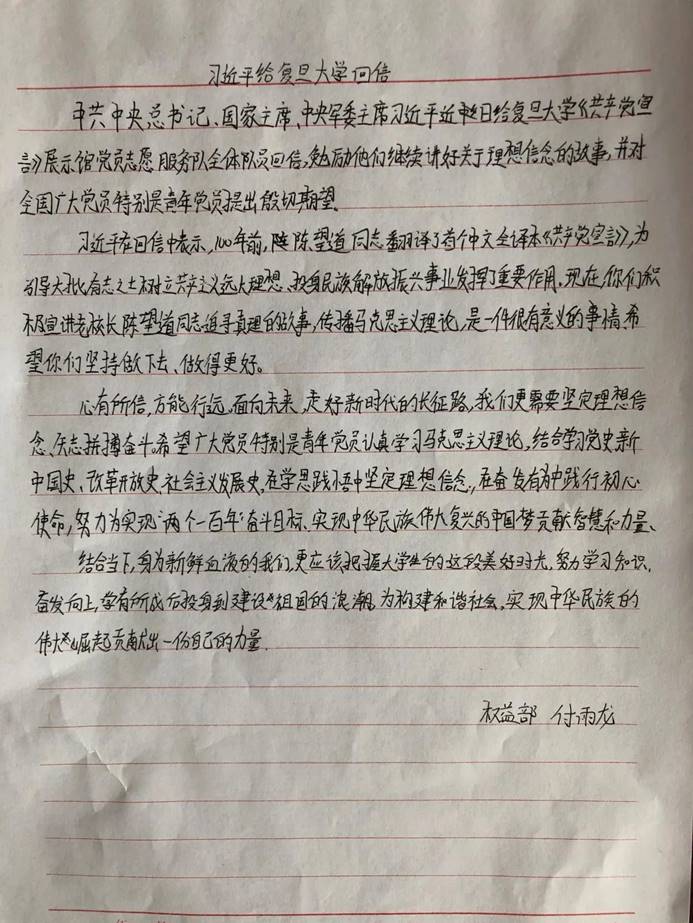 习近平给复旦大学回信
中共中央总书记、国家主席、中央军委主席习近平近日给复旦大学《共产党宣
言》展示馆党员志愿服务队全体队员回信,勉励他们继续讲好关于理想信念的故事,并对
全国广大党员特别是青年党员提出殷切期望。
习近平在回信中表示,100年前,陈望道同志翻译了首个中文全译本《共产党宣言》,为
引导大批有志之士树立共产主义远大理想、投身民族解放振兴事业发挥了重要作用。现在,你们积
极宣讲老校长陈望道同志追寻真理的故事,传播马克思主义理论,是一件很有意义的事情。希
望你们坚持做下去、做得更好。
心有所信,方能行远。面向未来,走好新时代的长征路,我们更需要坚定理想信
念、矢志拼搏奋斗。希望广大党员特别是青年党员认真学习马克思主义理论,结合学习党史、新
中国史、改革开放史、社会主义发展史,在学思践悟中坚定理想信念,在奋发有为中践行初心
使命,努力为实现“两个一百年”奋斗目标、实现中华民族伟大复兴的中国梦贡献智慧和力量。
结合当下,身为新鲜血液的我们,更应该把握大学生的这段美好时光,努力学习知识,
奋发向上,学有所成后投身到建设祖国的浪潮,为构建和谐社会,实现中华民族的
伟大崛起贡献出一份自己的力量。
权益部 付雨龙